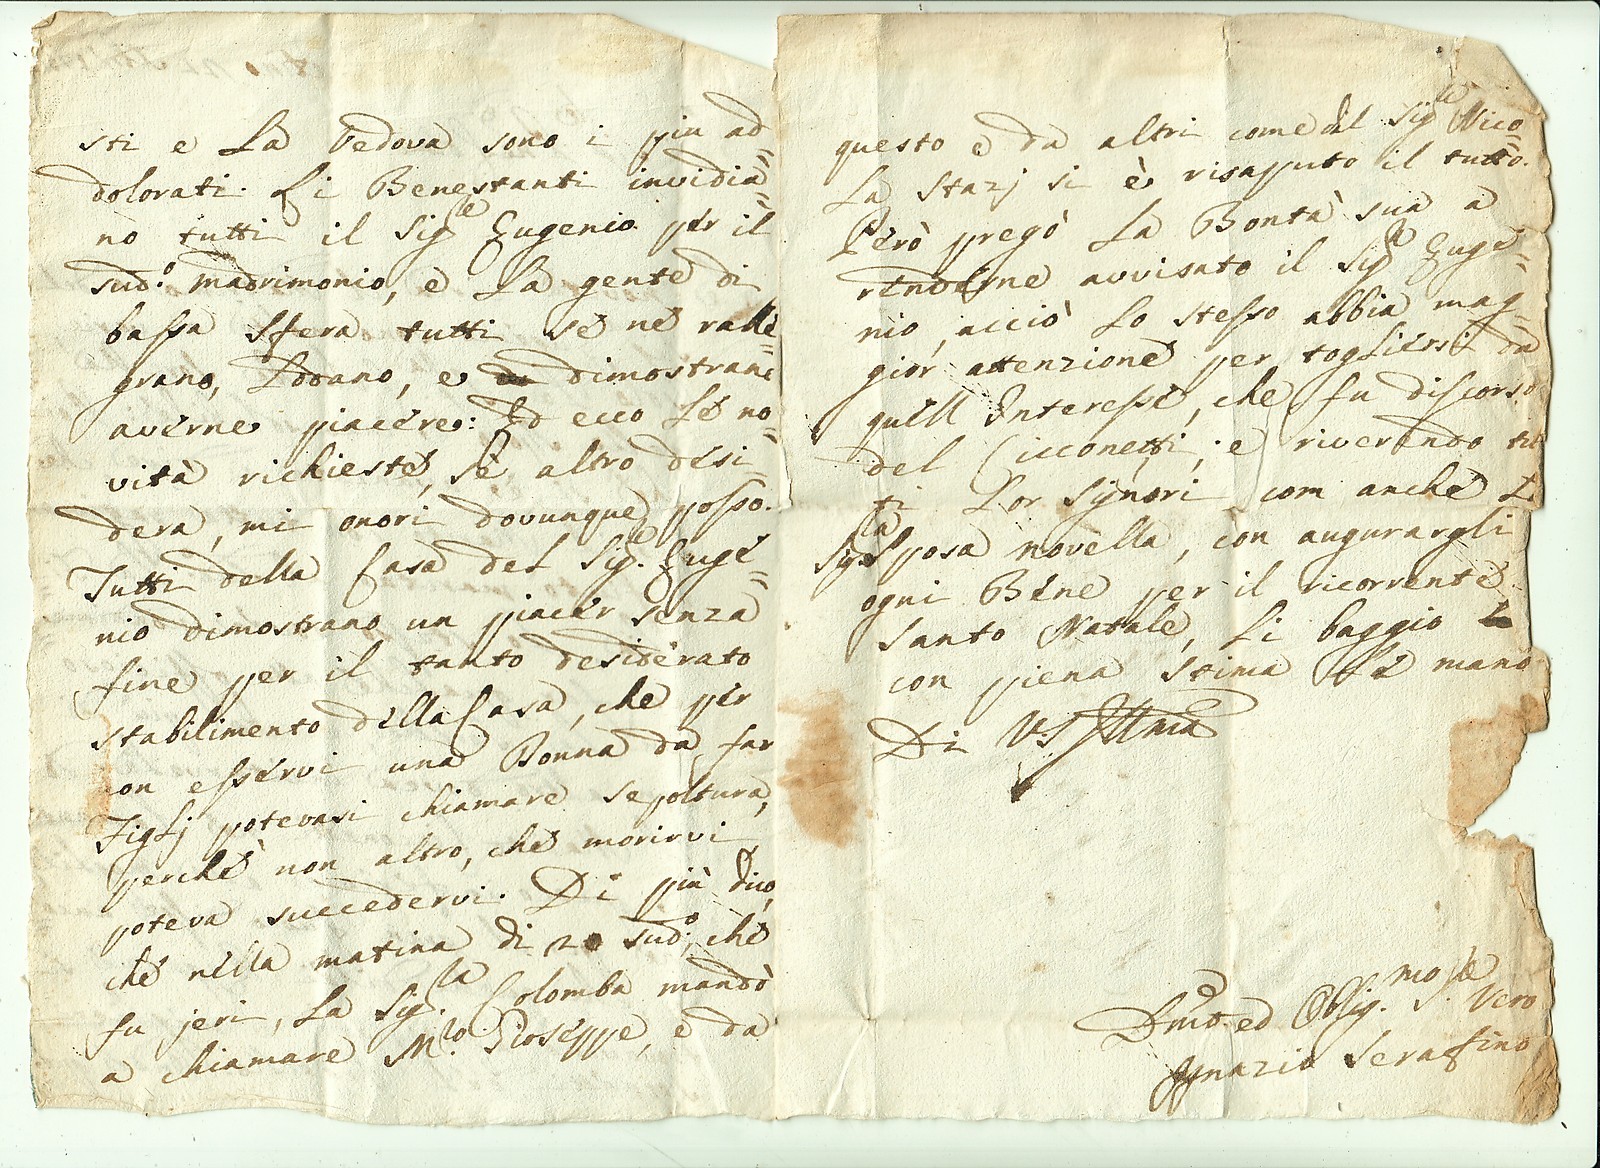 sti e La Vedova sono i piu ad=
dolorati. Li Benestanti invidia=
nò tutti il Sig.e Eugenio per il
sud.o madrimonio, e La gente di
bassa sfera tutti sé né ralle=
grano, Lodano, e dimostrano
averne piacere: Ed ecco Lé no=
vità richieste, Sè altro desi=
dera, mi onori dovunque posso.
Tutti della Casa del Sig.e Euge=
nio dimostrano un piacer senza
fine per il tanto desiderato
stabilimento della Casa, che per
non esservi una Donna da far
Figlj potevasi chiamare sepoltura,
perchè non altro, che morirvi
poteva succedervi. Di più dico,
che nella matina di 20 sud.o, che
fu jeri, La Sig.la Colomba mandò
a chiamare M.ro Gioseppe, e da
questo e da altri come dal Sig.le Nico=
La Stazj si è risaputo il tutto.
Però pregò La Bontà sua a
renderne avvisato il Sig.e Euge=
nio, acciò Lo stesso abbia mag=
gior attenzione per togliersi da
quell Interesse, che fu discorso
del Cicconetti; e riverendo tut
ti Lor Signori com anche L
Sig.la Sposa novella, con augurargli
ogni Bene per il ricorrente
Santo Natale, Li baggio
con piena stima Le mano
Di V.S. Illma
Dmo. ed Obblig.mo Se Vero
Ignazio Seraffino